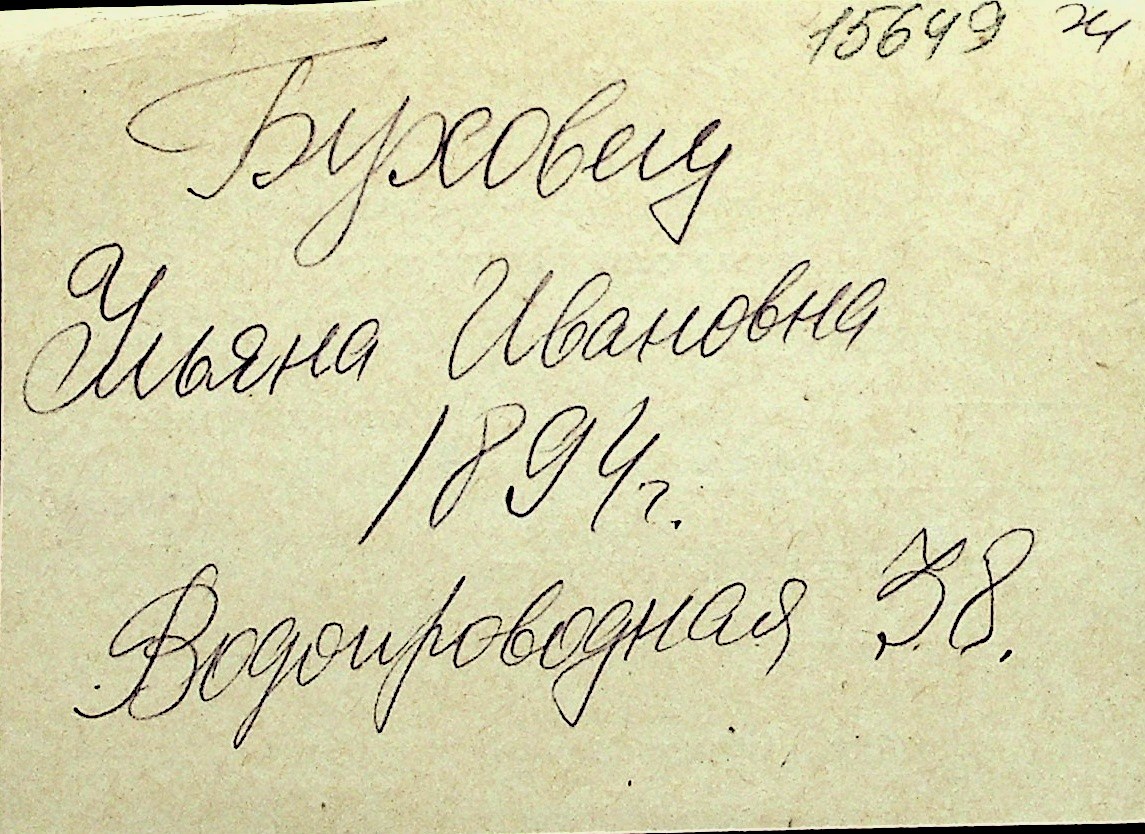 15649 ж
Буховец
Ульяна Ивановна
1894г.
Водопроводная 38.